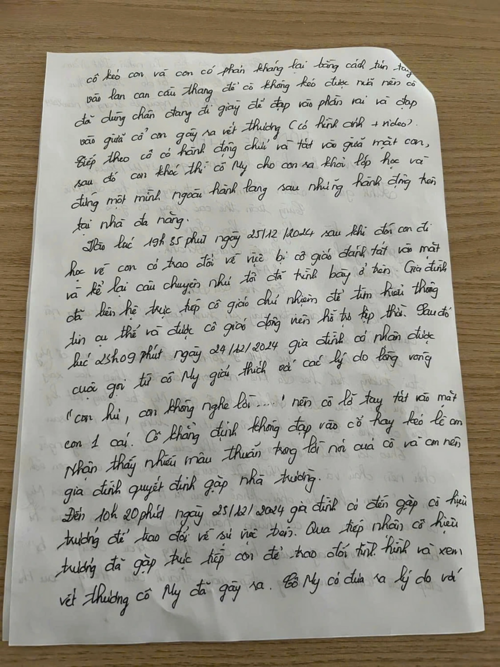 cô kéo con và con có phản kháng lại bằng cách túm tay
vào lan can cầu thang để cô không kéo được nữa nên cô
đã dùng chân đang đi giày để đạp vào phần vai và đạp
vào giữa cổ con gây ra vết thương (có hình ảnh + video).
Tiếp theo cô có hành động chửi và tát vào giữa mặt con,
sau đó con khóc thì cô My cho con ra khỏi lớp học và
đứng một mình ngoài hành lang sau những hành động trên
tại nhà đa năng.
Vào lúc 19h 55 phút ngày 25/12/2024 sau khi đón con đi
học về con có trao đổi về việc bị cô giáo đánh tát vào mặt
và kể lại câu chuyện như tôi đã trình bày ở trên. Gia đình
đã liên hệ trực tiếp cô giáo chủ nhiệm để tìm hiểu thông
tin cụ thể và được cô giáo động viên hỗ trợ kịp thời. Sau đó
lúc 23h09 phút ngày 24/12/2024 gia đình có nhận được
cuộc gọi từ cô My giải thích với các lý do lòng vòng
"con hư, con không nghe lời...." nên cô lỡ tay tát vào mặt
con 1 cái. Cô khẳng định không đạp vào cổ hay kéo lê em
Nhận thấy nhiều mâu thuẫn trong lời nói của cô và con nên
gia đình quyết định gặp nhà trường.
Đến 10h 20 phút ngày 25/12/2024 gia đình có đến gặp cô hiệu
trưởng để trao đổi về sự việc trên. Qua tiếp nhận cô hiệu
trưởng đã gặp trực tiếp con để trao đổi tình hình và xem
vết thương cô My đã gây ra. Cô My có đưa ra lý do với